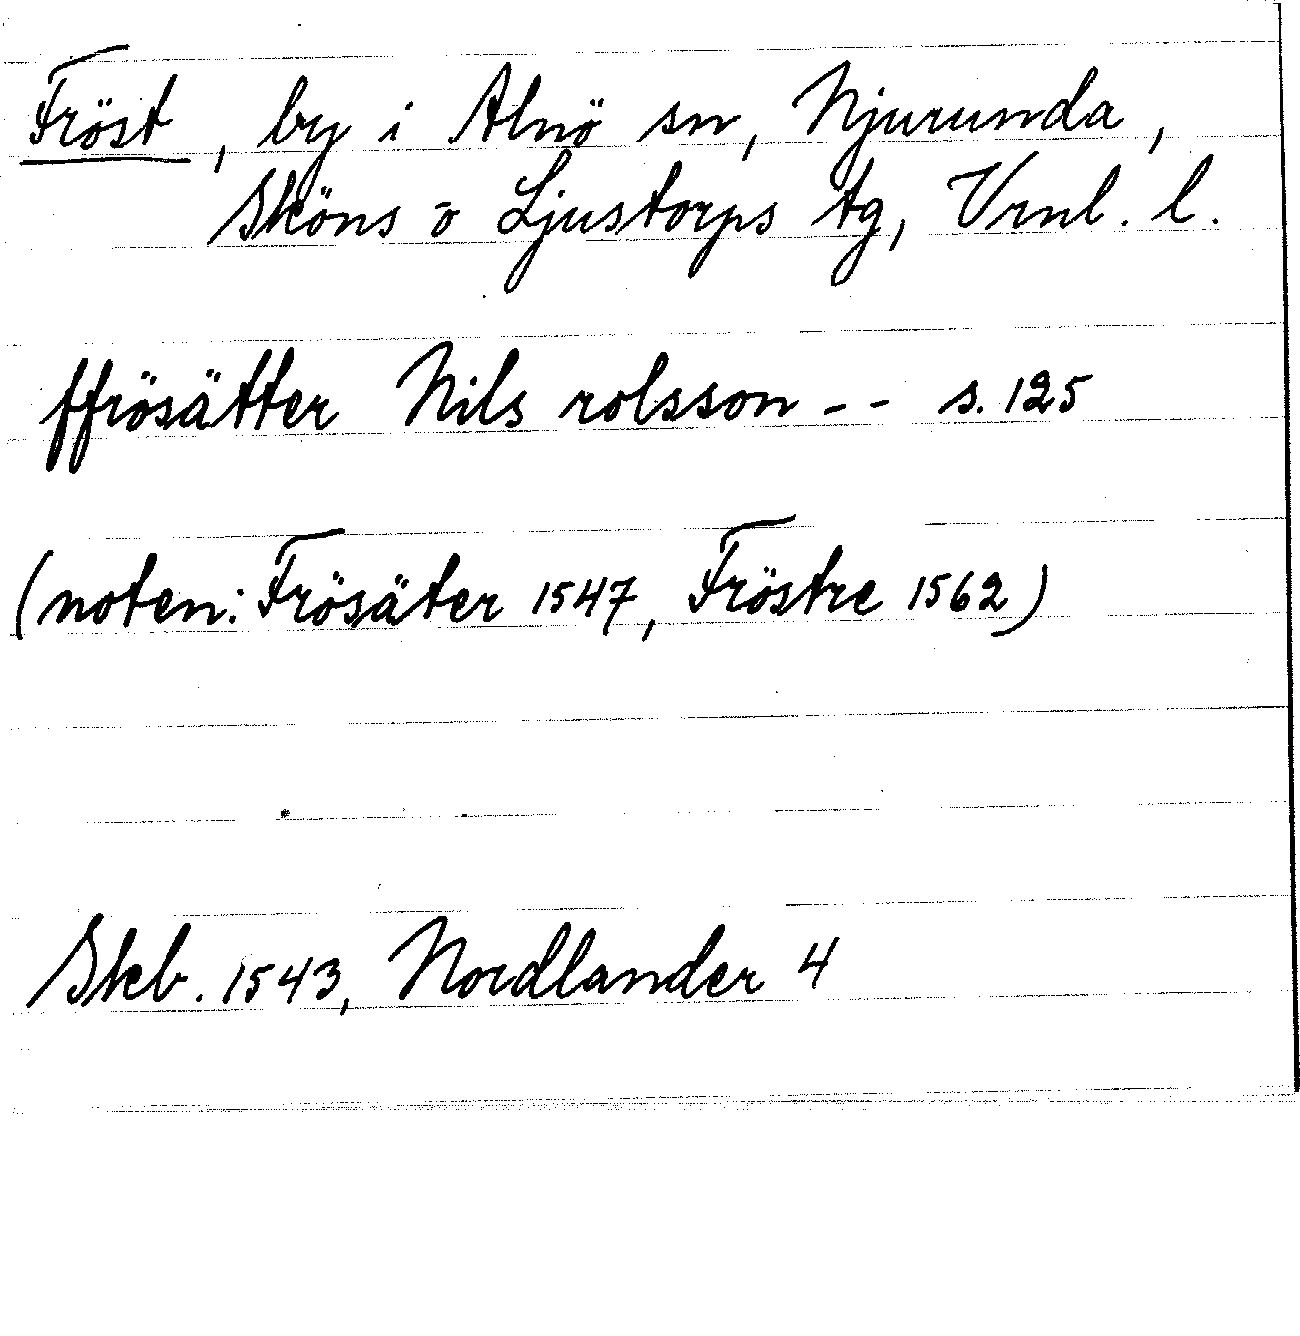 Fröst, by i Alnö sn, Njurunda,
Sköns o Ljustorps tg, Vrnl. l.
ffrösätter Nils rolsson -- s. 125
(noten: Frösäter 1547, Fröstre 1562)
Skb. 1543, Nordlander 4